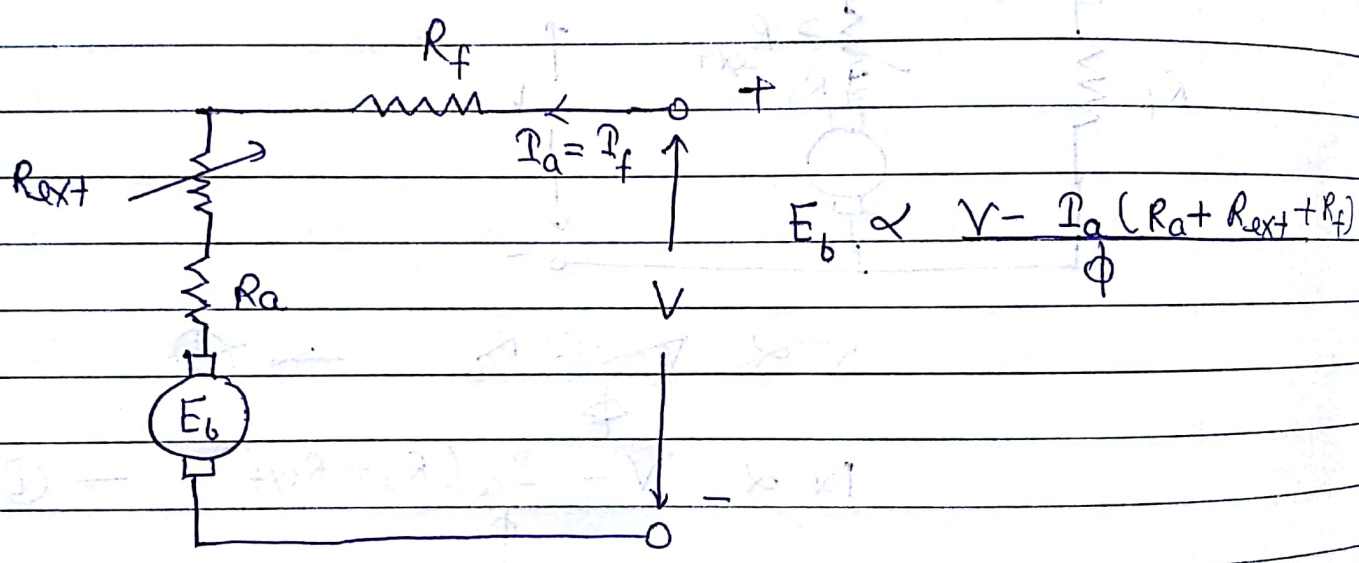 R_f
+
I_a = I_f
R_ext
E_b ∝ V - I_a (R_a + R_ext + R_f)
ϕ
Ra
V
E_b
-